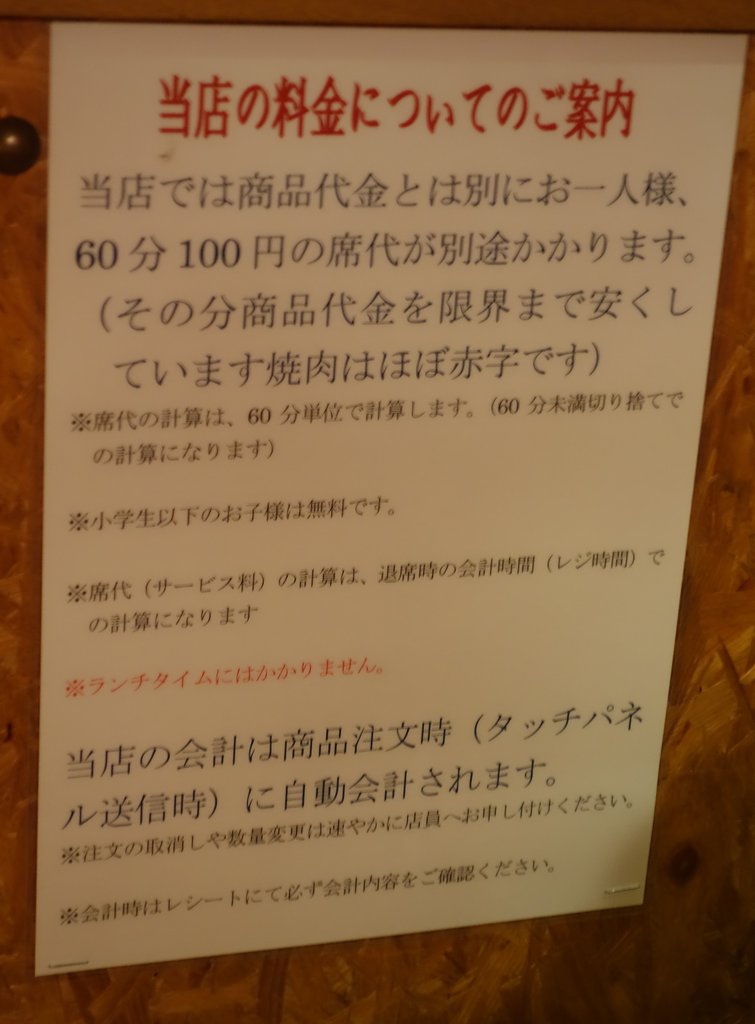 当店の料金についてのご案内
当店では商品代金とは別にお一人様、
60分100円の席代が別途かかります。
（その分商品代金を限界まで安くし
ています焼肉はほぼ赤字です）
※席代の計算は、60分単位で計算します。（60分未満切り捨てで
の計算になります）
※小学生以下のお子様は無料です。
※席代（サービス料）の計算は、退席時の会計時間（レジ時間）で
の計算になります
※ランチタイムにはかかりません。
当店の会計は商品注文時（タッチパネ
ル送信時）に自動会計されます。
※注文の取消しや数量変更は速やかに店員へお申し付けください。
※会計時はレシートにて必ず会計内容をご確認ください。